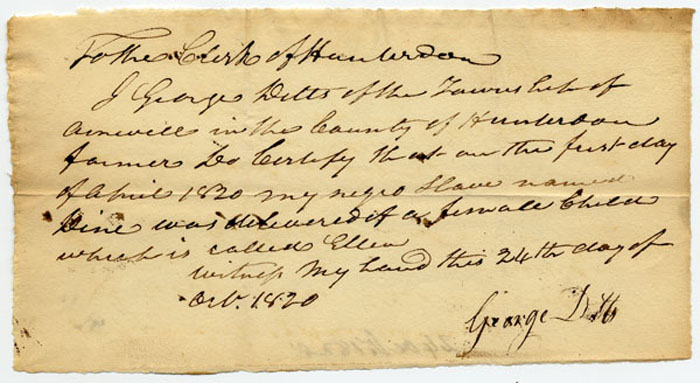 To the Clerk of Hunterdon
I George Ditts of the Township of
amwell in the County of Hunterdon
farmer Do Certify that on the first day
of April 1820 my negro slave named
Dine was delivered of a female Child
which is called Ellen
witness my hand this 24th day of
Oct. 1820
George Ditts